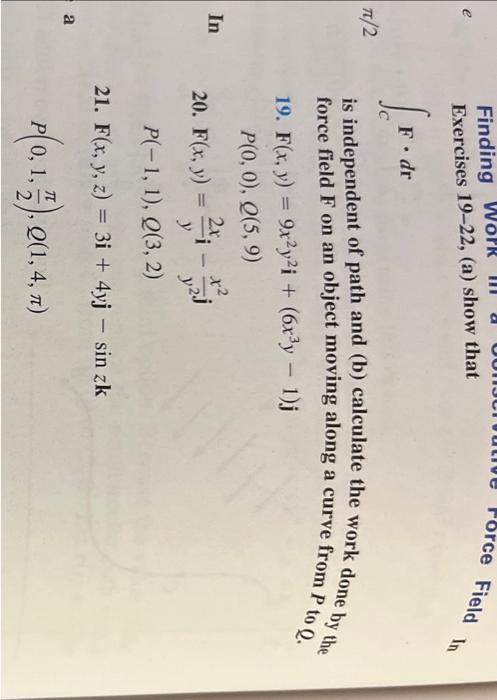 Finding Work in a Conservative Force Field In
e Exercises 19–22, (a) show that
∫_C F • dr
π/2
is independent of path and (b) calculate the work done by the
force field F on an object moving along a curve from P to Q.
19. F(x, y) = 9x²y²i + (6x³y − 1)j
P(0, 0), Q(5, 9)
In 20. F(x, y) = 2x/y i − x²/y² j
P(−1, 1), Q(3, 2)
21. F(x, y, z) = 3i + 4yj − sin zk
a
P(0, 1, π/2), Q(1, 4, π)